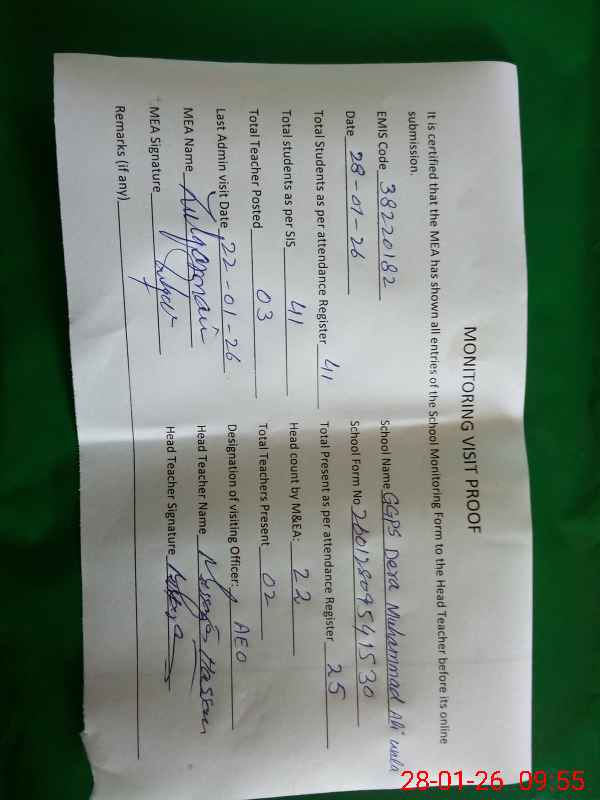 MONITORING VISIT PROOF
It is certified that the MEA has shown all entries of the School Monitoring Form to the Head Teacher before its online
submission.
EMIS Code 38220182 School Name GGPS Dera Muhammad Ali wala
Date 28-01-26 School Form No
Total Students as per attendance Register 41 Total Present as per attendance Register 25
Total students as per SIS 41 Head count by M&EA: 22
Total Teacher Posted 03 Total Teachers Present 02
Last Admin visit Date 22-01-26 Designation of visiting Officer: AEO
MEA Name Head Teacher Name Hassan
MEA Signature Head Teacher Signature
Remarks (if any)
28-01-26 09:55